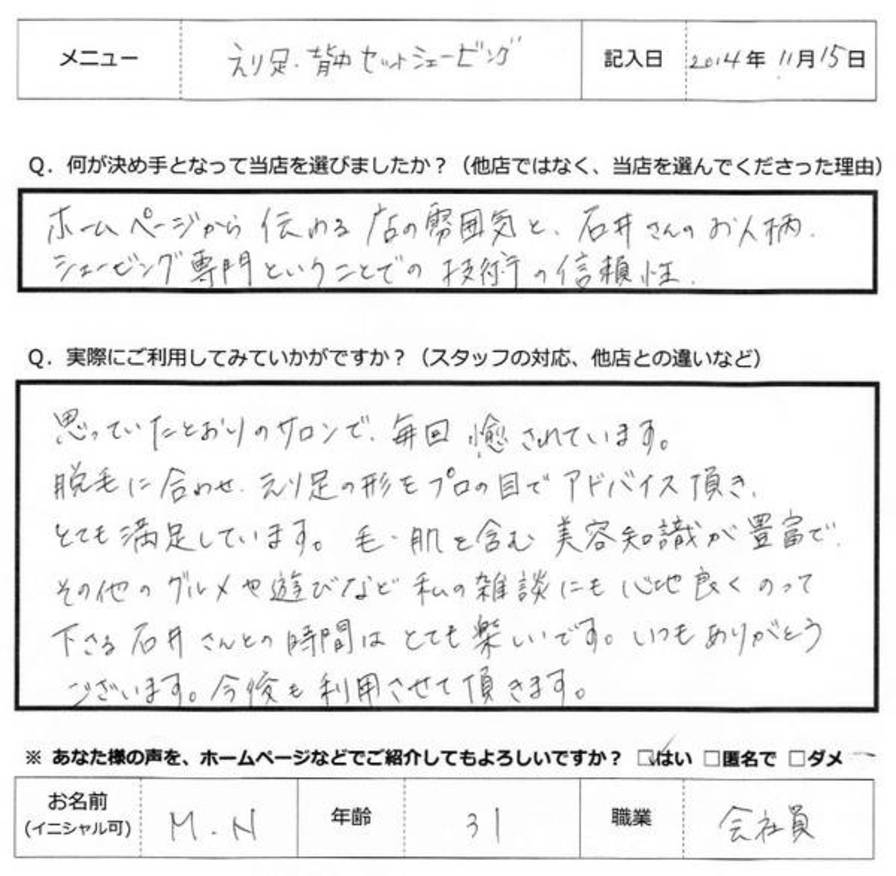 メニュー えり足・背中セットシェービング 記入日 2014年 11月15日
Q. 何が決め手となって当店を選びましたか?(他店ではなく、当店を選んでくださった理由)
ホームページから伝わる店の雰囲気と、石井さんのお人柄.
シェービング専門ということでの技術の信頼性.
Q. 実際にご利用してみていかがですか?(スタッフの対応、他店との違いなど)
思っていたとおりのサロンで、毎回癒されています。
脱毛に合わせ、えり足の形をプロの目でアドバイス頂き、
とても満足しています。毛・肌を含む美容知識が豊富で、
その他のグルメや遊びなど私の雑談にも心地良くのって
下さる石井さんとの時間はとても楽しいです。いつもありがとう
ございます。今後も利用させて頂きます。
※ あなた様の声を、ホームページなどでご紹介してもよろしいですか? ☑はい □匿名で □ダメ
お名前 (イニシャル可) M.N 年齢 31 職業 会社員